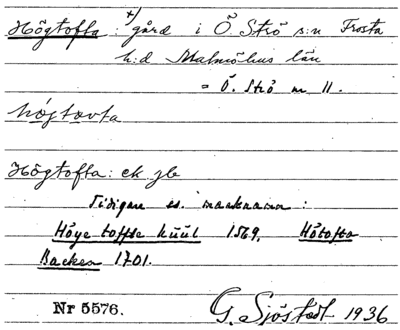 Högtofta: +) gård i Ö Strö s:n Frosta
h:d Malmöhus län
= Ö. Strö nr 11.
högtovta
Högtofta: ek jb
Tidigare ss. marknamn:
Höye toffte küül 1569, Håtofta
Backen 1701.
Nr 5576. G. Sjöstedt 1936